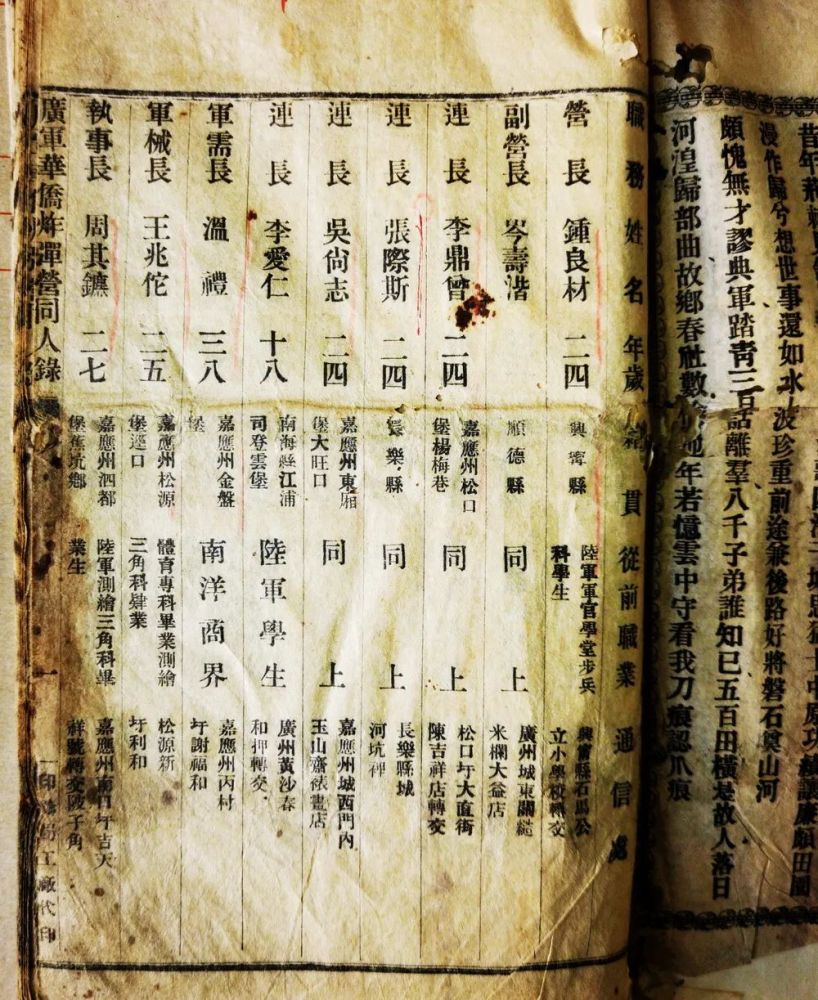 昔年
漫作歸兮想世事還如水上波珍重前途兼後路好將磐石奠山河
頗愧無才謬典軍踏青三百話離羣八千子弟誰知已五百田橫是故人落日
河湟歸部曲故鄉春社數年若憶雲中守看我刀痕認爪痕
職務 姓名 年歲 籍貫 從前職業 通信處
營長 鍾良材 二四 興寧縣 陸軍軍官學堂步兵科學生 興甯縣石馬公立小學校轉交
副營長 岑壽潜 順德縣 同上 廣州城東關 米欄大益店
連長 李鼎曾 二四 嘉應州松口堡楊梅巷 同上 松口圩大直街陳吉祥店轉交
連長 張際斯 二四 長樂縣 同上 長樂縣城河坑裡
連長 吳尙志 二四 嘉應州東廂堡大旺口 同上 嘉應州城西門內玉山齋裱畫店
連長 李愛仁 十八 南海縣江浦司登雲堡 陸軍學生 廣州黃沙春和押轉交
軍需長 溫禮 三八 嘉應州金盤堡 南洋商界 嘉應州丙村圩謝福和
軍械長 王兆佗 二五 嘉應州松源堡逕口 體育專科畢業測繪三角科肄業 松源新圩利和
執事長 周其鑣 二七 嘉應州泗都堡蕉坑鄉 陸軍測繪三角科畢業生 嘉應州南口圩吉天祥號轉交陵子角
廣軍華僑炸彈營同人錄 一 印務局工廠代印